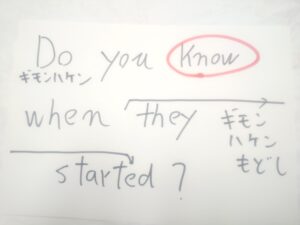 Do you know
ギモンハケン
when they
ギモン
ハケン
もどし
started?